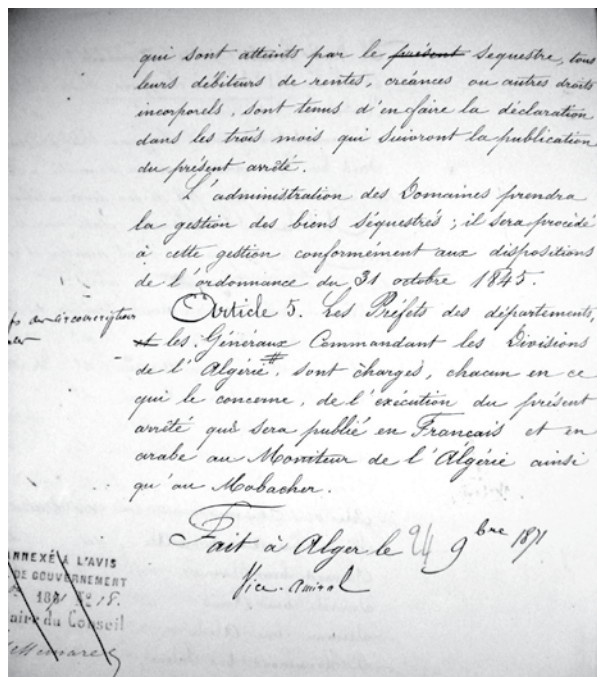 qui sont atteints par le présent sequestre, tous
leurs débiteurs de rentes, créances ou autres droits
incorporels, sont tenus d'en faire la déclaration
dans les trois mois qui suivront la publication
du présent arrêté.
L'administration des Domaines prendra
la gestion des biens séquestrés ; il sera procédé
à cette gestion conformément aux dispositions
de l'ordonnance du 31 octobre 1845.
Article 5. Les Préfets des départements,
et les Généraux Commandant les Divisions
de l'Algérie #, sont chargés, chacun en ce
qui le concerne, de l'exécution du présent
arrêté qui sera publié en Français et en
arabe au Moniteur de l'Algérie ainsi
qu'au Mobacher.
Fait à Alger le 9bre 1871
Vice-amiral
circonscriptions
ANNEXÉ À L'AVIS
DE GOUVERNEMENT
18
aire du Conseil